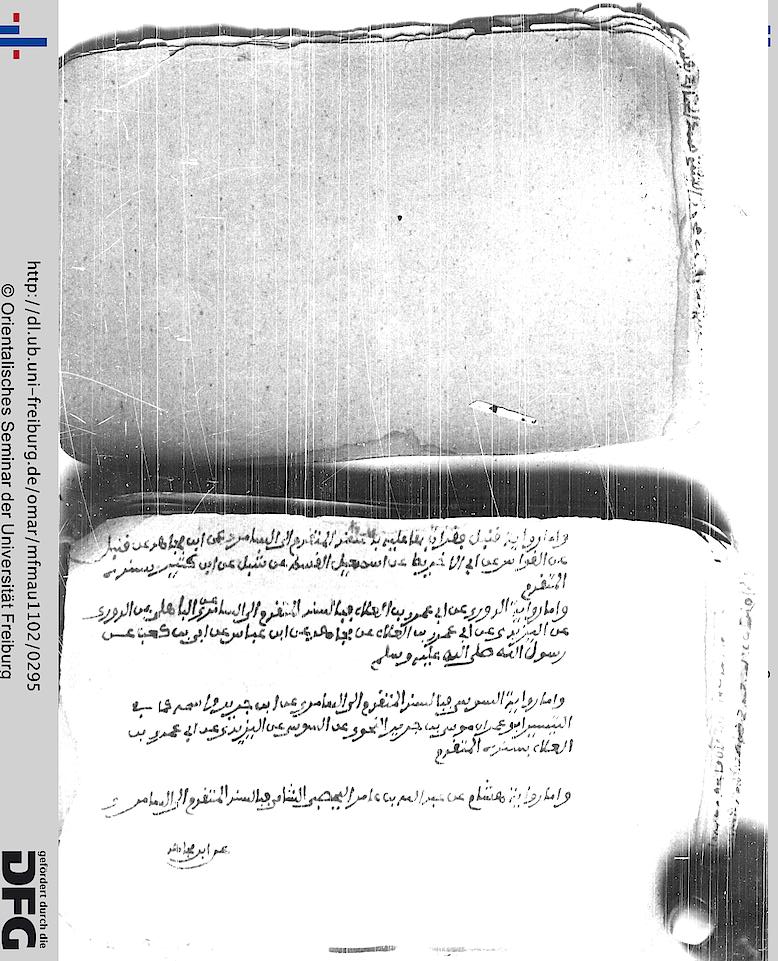 واما رواية قنبل فقرأت بها عليه بالسند المتقدم الى السامري عن ابن مجاهد عن قنبل
عن القواس عن ابي الاخريط عن اسمعيل القسط عن شبل عن ابن كثير بسنده
المتقدم
واما رواية الدوري عن ابي عمرو بن العلاء فبالسند المتقدم الى السامري عن الباهلي عن الدوري
عن اليزيدي عن ابي عمرو بن العلاء عن مجاهد عن ابن عباس عن ابي بن كعب عن
رسول الله صلى الله عليه وسلم
واما رواية السوسي فبالسند المتقدم الى السامري عن ابن جرير واسمه كما في
التيسير ابو عمران موسى بن جرير النحوي عن السوسي عن اليزيدي عن ابي عمرو بن
العلاء بسنده المتقدم
واما رواية هشام عن عبد الله بن عامر اليحصبي الشامي فبالسند المتقدم الى السامري
عن ابن مجاهد
http://dl.ub.uni-freiburg.de/omar/mfmau1102/0295
© Orientalisches Seminar der Universität Freiburg
gefördert durch die
DFG